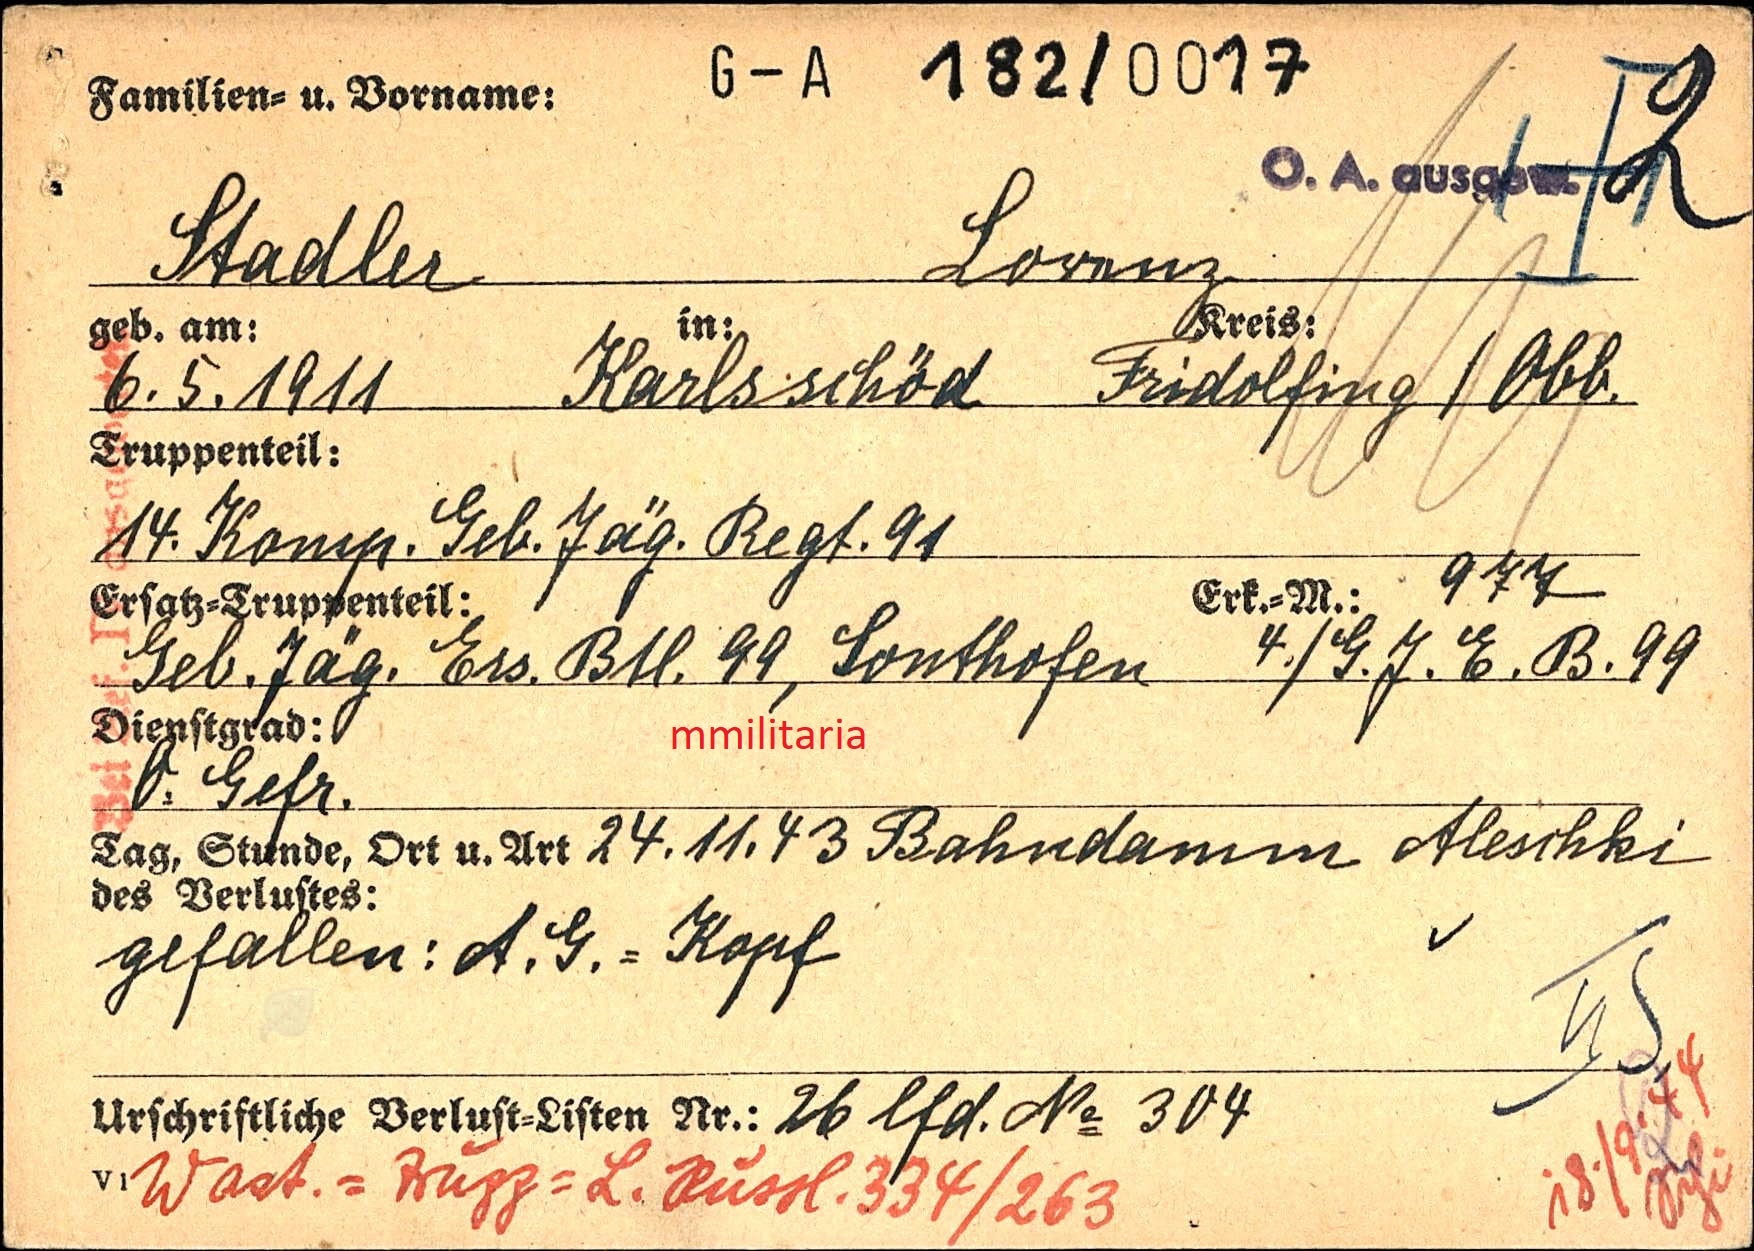 G-A 182/0017
Familien- u. Vorname:
O. A. ausgew. 2
Stadler Lorenz
geb. am: in: Kreis:
6. 5. 1911 Karlsschöd Fridolfing / Obb.
Truppenteil:
14. Komp. Geb. Jäg. Regt. 91
Ersatz-Truppenteil: Erk.-M.: 977
Geb. Jäg. Ers. Btl. 99, Sonthofen 4./G. J. E. B. 99
Dienstgrad:
O. Gefr.
mmilitaria
Tag, Stunde, Ort u. Art 24. 11. 43 Bahndamm Aleschki
des Verlustes:
gefallen: A. G. = Kopf
Urschriftliche Verlust-Listen Nr.: 26 lfd. No 304
V 1 Wast. = L. Russl. 334/263
18./9. 44